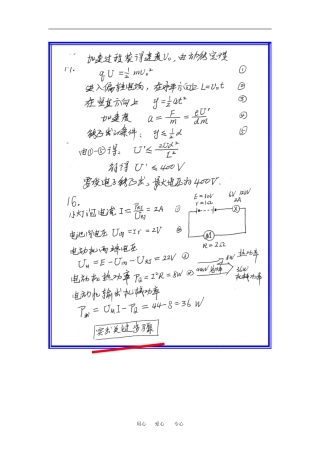 加速过程获得速度U₀,由动能定理
17. qU=½mU₀² ①
进入偏转电场,在水平方向上 L=U₀t ②
在竖直方向上 y=½at² ③
加速度 a=F/m=eU'/dm ④
能飞出条件: y≤½d ⑤
由①-⑤得, U'≤2Ud²/L²
解得 U'≤400V
要使电子能飞出,最大电压为400V.
16.
小灯泡电流 I=P额/U额=2A ①
电池内电压 U内=Ir=2V ②
电动机两端电压
U M=E-U内-U额=22V ③
电动机热功率 P热=I²R=8W ④
电动机输出机械功率
P出=U M I-P热=44-8=36W
突出关键步骤
r=1Ω
6V 12W
2A
M
R=2Ω
8W 热功率
36W
机械功率
用心 爱心 专心